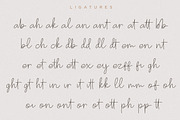 LIGATURES
ab ah ak al an ant ar at att bb
bl ch ck db dd ll dt em en ent
er et eth ett ex ey ezff fi gh
ght gt ht in ir it itt kk ll mm of oh
oi on ont or ot ott ph pp tt